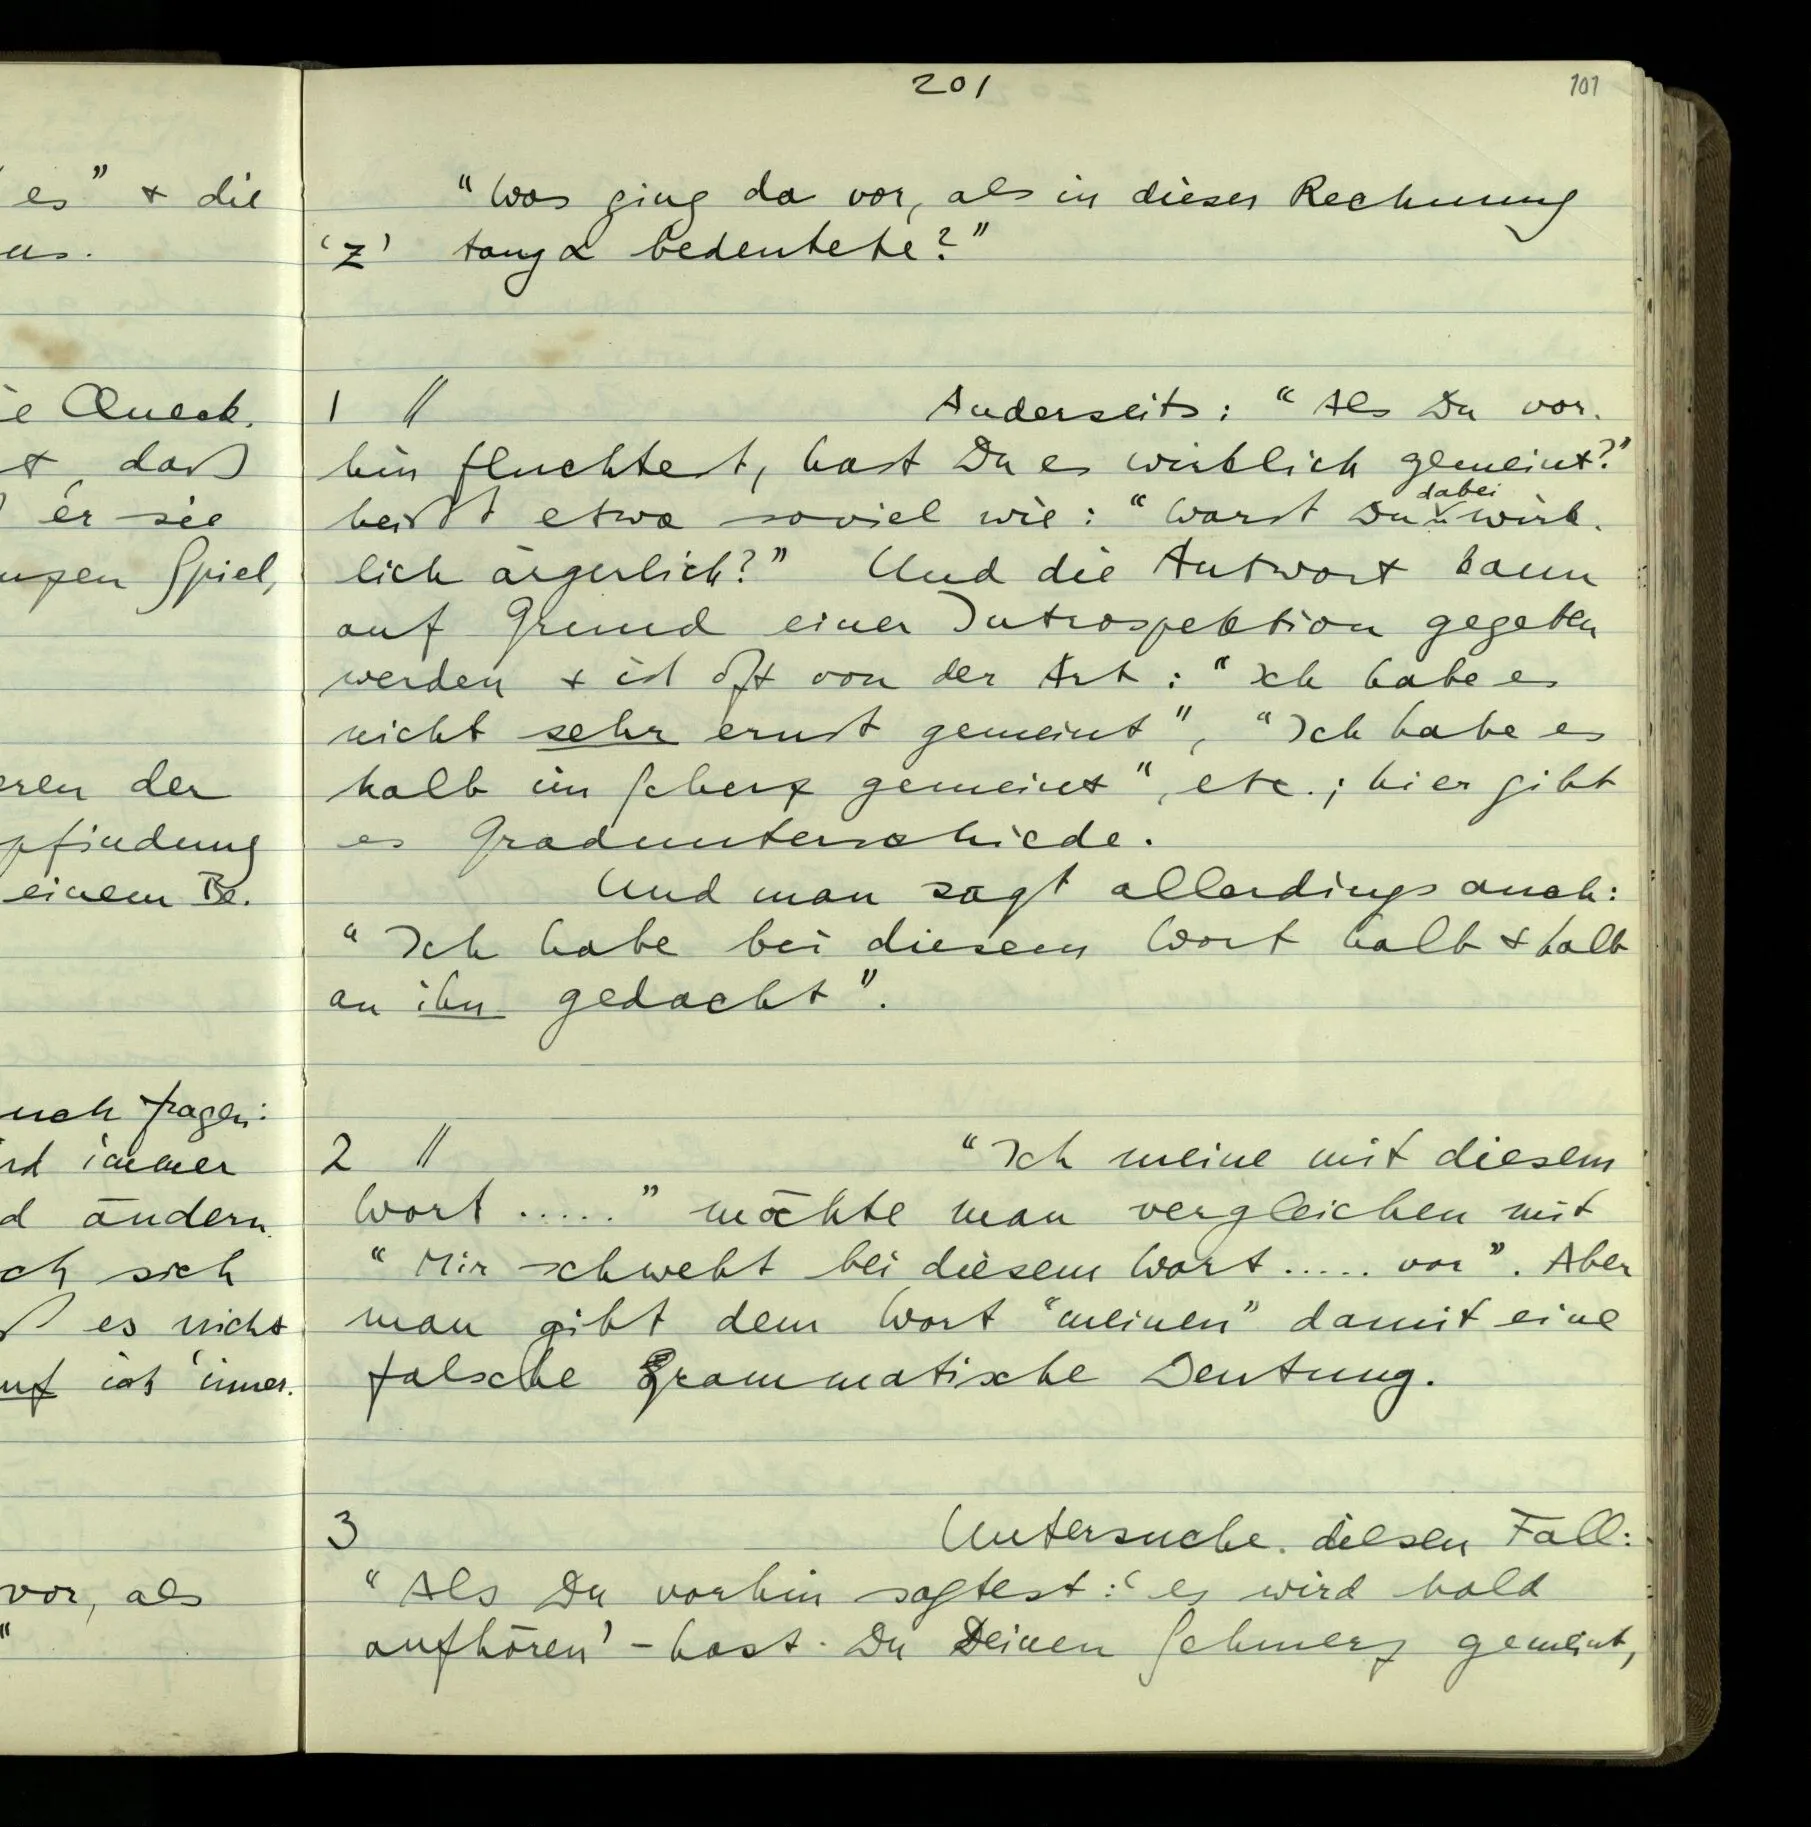 201
101
es" + die
"Was ging da vor, als in dieser Rechnung
'z' tang α bedeutete?"
e Queck.
1 // Anderseits: "Als Du vor-
t daß
hin fluchtest, hast Du es wirklich gemeint?"
er sie
dabei
heißt etwa soviel wie: "Warst Du wirk-
Spiel,
lich ärgerlich?" Und die Antwort kann
auf Grund einer Introspektion gegeben
werden + ist oft von der Art: "Ich habe es
nicht sehr ernst gemeint", "Ich habe es
eren der
halb im Scherz gemeint", etc.; hier gibt
pfindung
es Gradunterschiede.
einem Be-
Und man sagt allerdings auch:
"Ich habe bei diesem Wort halb + halb
an ihn gedacht".
uch fragen:
rd immer
2 // "Ich meine mit diesem
d ändern.
Wort ....." möchte man vergleichen mit
ch sich
"Mir schwebt bei diesem Wort ..... vor". Aber
es nicht
man gibt dem Wort "meinen" damit eine
uf ich immer.
falsche Grammatische Deutung.
3 Untersuche diesen Fall:
vor, als
"Als Du vorhin sagtest: 'es wird bald
aufhören' – hast Du Deinen Schmerz gemeint,